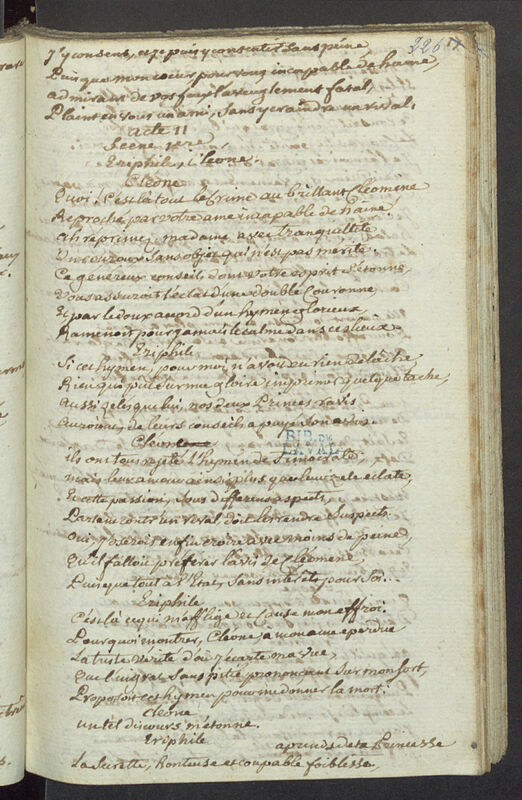 226
J'y consens, et je puis y consentir sans peine,
Puisque mon coeur pour vous incapable de haine,
admirant de vos feux l'aveuglement fatal,
Plaint en vous un ami, sans y craindre un rival.
acte II
Scene 1ere
Eriphile, Cleone.
Cleone
Quoi! c'est la tout le crime au brillant Cleomene
Reproché par votre ame incapable de haine!
ah reprimez madame avec tranquillité
Un couroux sans objet qui n'est pas merité.
Ce genereux conseil dont votre esprit s'étonne,
Vous assuroit l'eclat d'une double Couronne,
Et par le doux acord d'un hymen glorieux
Ramenoit pour jamais le calme dans ces lieux.
Eriphile
Si cet hymen, pour moi, n'avoit eu rien de lache,
Rien qui put sur ma gloire imprimer quelque tache,
Aussi zelés que lui, nos deux Princes ravis
Auroient de leurs conseils apuyé son avis.
Cleone
ils ont tous rejeté l'hymen de Timocrate:
mais leur amour ainsi plus que leur zele eclate,
Et cette passion, sous differens aspects,
Parlant contr'un rival doit les rendre suspects.
Oui, j'oserois enfin croire avec moins de peine,
Qu'il falloit préferer l'avis de Cléomene,
Puisque tout à l'Etat, sans interêts pour soi...
Eriphile
C'est là ce qui m'afflige et cause mon effroi.
Pourquoi montrer, Cleone, a mon ame eperdue
La triste verité d'où j'ecarte ma vue,
Que l'ingrat sans pitié prononçant sur mon sort,
Proposoit cet hymen pour me donner la mort.
Cleone
un tel discours m'etonne.
Eriphile
aprends de ta Princesse
La secrette, honteuse et coupable foiblesse,
BIB. DU
HAVRE